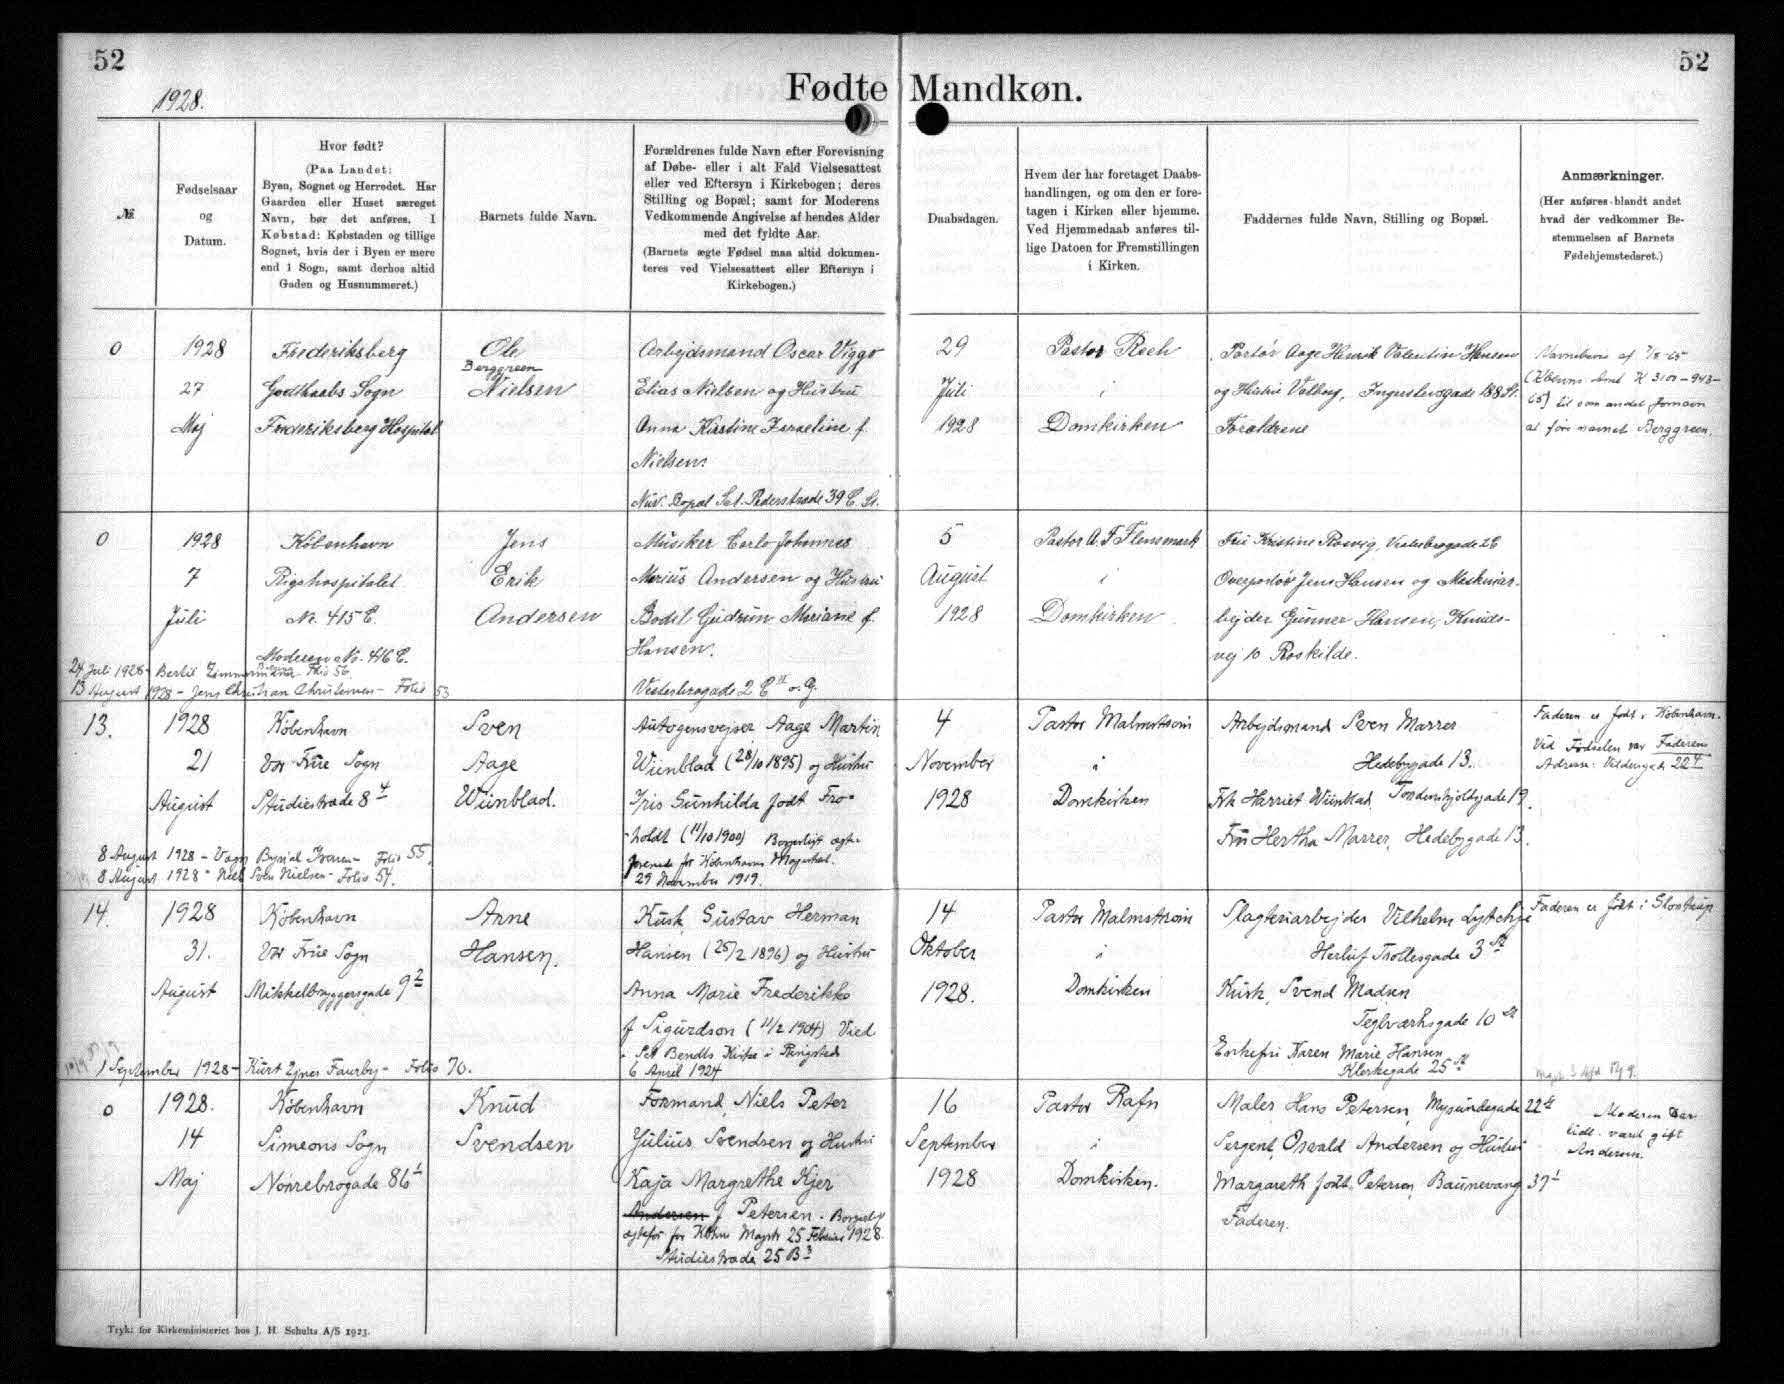 52
52
Fødte Mandkøn.
1928.
№
Fødselsaar
og
Datum.
Hvor født?
(Paa Landet:
Byen, Sognet og Herredet. Har
Gaarden eller Huset særeget
Navn, bør det anføres. I
Købstad: Købstaden og tillige
Sognet, hvis der i Byen er mere
end 1 Sogn, samt derhos altid
Gaden og Husnummeret.)
Barnets fulde Navn.
Forældrenes fulde Navn efter Forevisning
af Døbe- eller i alt Fald Vielsesattest
eller ved Eftersyn i Kirkebogen; deres
Stilling og Bopæl; samt for Moderens
Vedkommende Angivelse af hendes Alder
med det fyldte Aar.
(Barnets ægte Fødsel maa altid dokumen-
teres ved Vielsesattest eller Eftersyn i
Kirkebogen.)
Daabsdagen.
Hvem der har foretaget Daabs-
handlingen, og om den er fore-
tagen i Kirken eller hjemme.
Ved Hjemmedaab anføres til-
lige Datoen for Fremstillingen
i Kirken.
Faddernes fulde Navn, Stilling og Bopæl.
Anmærkninger.
(Her anføres blandt andet
hvad der vedkommer Be-
stemmelsen af Barnets
Fødehjemstedsret.)
0
1928
27
Maj
Frederiksberg
Godthaabs Sogn
Frederiksberg Hospital
Ole
Berggreen
Nielsen
Arbejdsmand Oscar Viggo
Elias Nielsen og Hustru
Anna Kirstine Karoline f.
Nielsen.
Nuv. Bopæl Sct. Pederstræde 39 C. St.
29
Juli
1928
Pastor Koch
i
Domkirken
Portør Aage Henrik Valentin Hansen
og Hustru Valborg, Ingerslevsgade 188 St.
Forældrene
Navnebevis af 7/8-65
(Kbhvns Amt K 3100-943-
65) til som andet fornavn
at føre navnet Berggreen.
0
1928
7
Juli
København
Rigshospitalet
Nr. 415 C.
Moderens Nr. 416 C.
Jens
Erik
Andersen
Musiker Carlo Johannes
Marius Andersen og Hustru
Bodil Gudrun Mariane f.
Hansen.
Vesterbrogade 2 C o. G.
5
August
1928
Pastor A. F. Flensmark
i
Domkirken
Fru Kristine Rosvig, Vesterbrogade 2 C
Overportør Jens Hansen og Maskinar-
bejder Gunner Hansen, Knuds-
vej 10 Roskilde.
24 Juli 1928 - Bertil Zimmermann - Folio 56.
13 August 1928 - Jens Christian Christensen - Folio 53
13.
1928
21
August
København
Vor Frue Sogn
Studiestræde 8 4
Sven
Aage
Wiinblad.
Autogensvejser Aage Martin
Wiinblad (28/10 1895) og Hustru
Iris Gunhilda født Fro-
holdt (11/10 1900) Borgerligt ægte-
forenede for Københavns Magistrat.
29 November 1919.
4
November
1928
Pastor Malmstrøm
i
Domkirken
Arbejdsmand Sven Marrer
Hedebygade 13.
Frk Harriet Wiinblad Tordenskjoldsgade 19.
Fru Hertha Marrer, Hedebygade 13.
Faderen er født i København.
Ved Fødselen var Faderens
Adresse: Voldersgade 22 4
8 August 1928 - Vagn Byrial Ivarsen - Folio 55.
8 August 1928 - Niels Sven Nielsen - Folio 54.
14.
1928
31.
August
København
Vor Frue Sogn
Mikkelbryggersgade 9 2
Arne
Hansen.
Kusk, Gustav Herman
Hansen (25/2 1896) og Hustru
Anna Marie Frederikke
f Sigurdson (11/2 1904) Viede
i Sct Bendts Kirke i Ringsted
6 April 1924
14
Oktober
1928.
Pastor Malmstrøm
i
Domkirken
Slagteriarbejder Vilhelm Lytchje
Herluf Trollesgade 3 St
Kusk, Svend Madsen
Teglværksgade 10 St
Enkefru Karen Marie Hansen
Klerkegade 25 St
Faderen er født i Glostrup
1 September 1928 - Kurt Ejner Faurby - Folio 70.
0
1928.
14
Maj
København
Simeons Sogn
Nørrebrogade 86 1
Knud
Svendsen
Formand, Niels Peter
Julius Svendsen og Hustru
Kaja Margrethe Kjer
Andersen f Petersen. Borgerligt
ægtefor for Kbhvns Magistr 25 Februar 1928.
Studiestræde 25 B 3
16
September
1928
Pastor Rafn
i
Domkirken.
Maler Hans Petersen, Mysundegade 22
Sergent, Osvald Andersen og Hustru
Margareth født Petersen, Baunevang 37 1
Faderen.
Moderen har
tidl. været gift
Andersen.
Trykt for Kirkeministeriet hos J. H. Schultz A/S 1923.